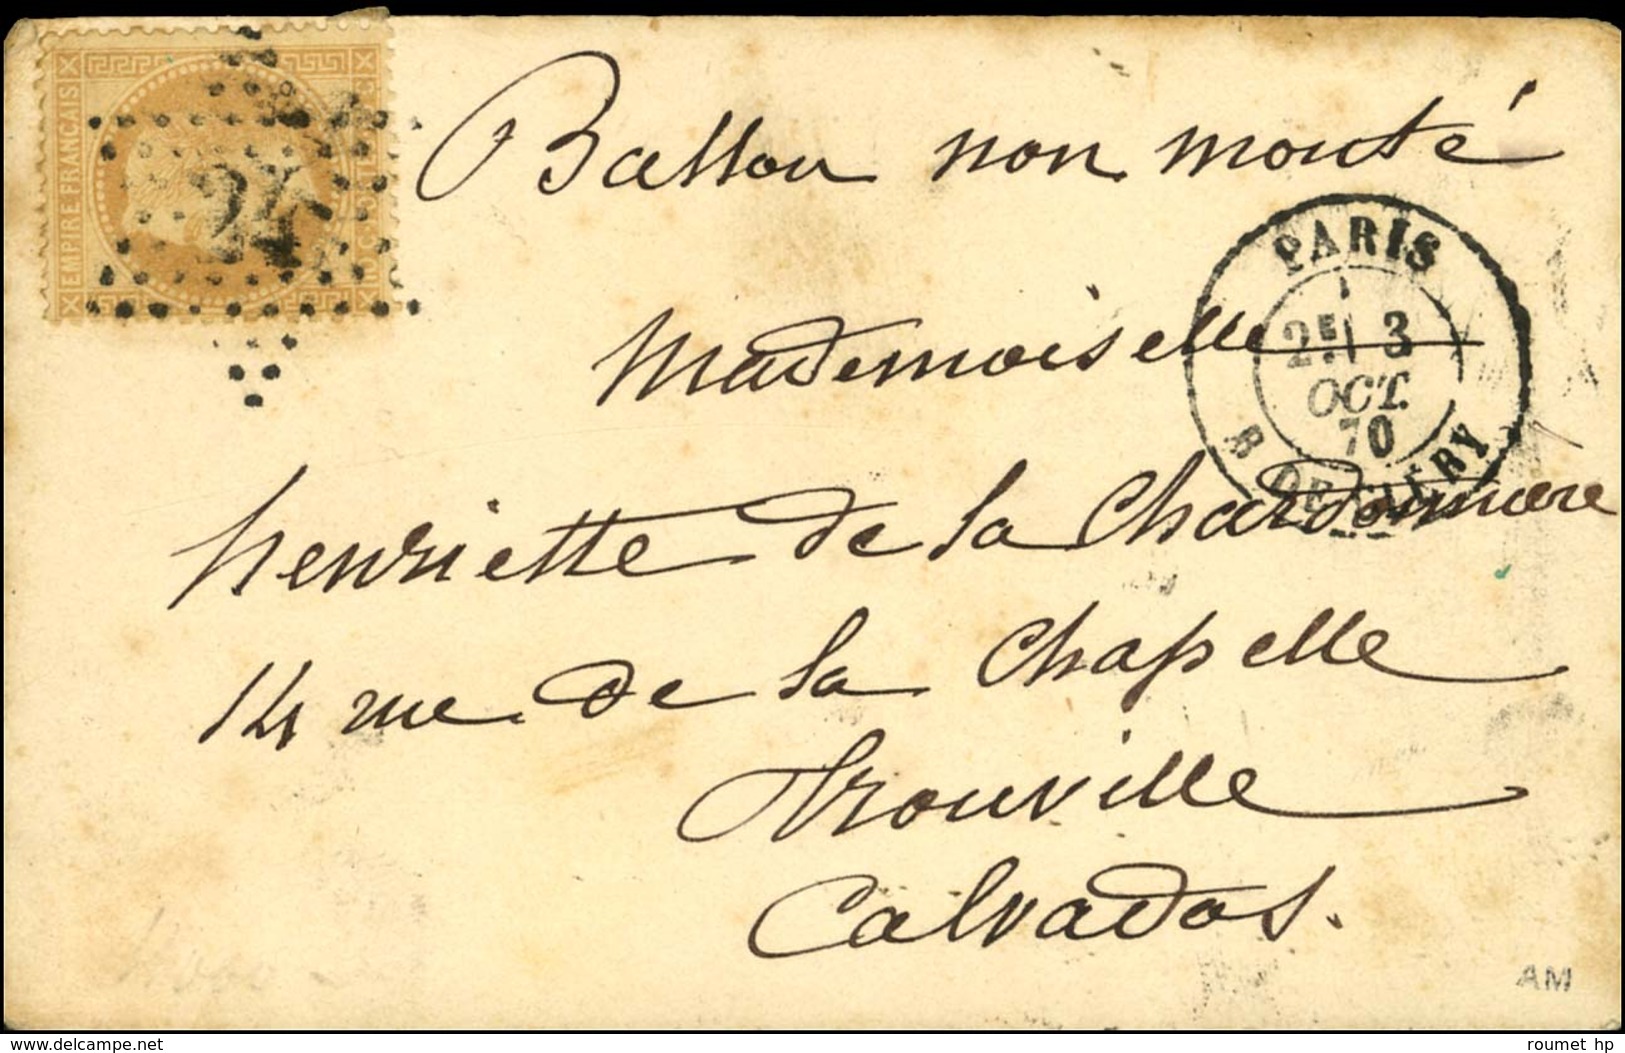 EMPIRE FRANÇAIS
24
Ballon non monté
PARIS
2E 3
OCT.
70
R. DE CLÉRY
Mademoiselle
henriette de la Chardonnière
14 rue de la Chapelle
Trouville
Calvados.
AM
delcampe.net
roumet hp